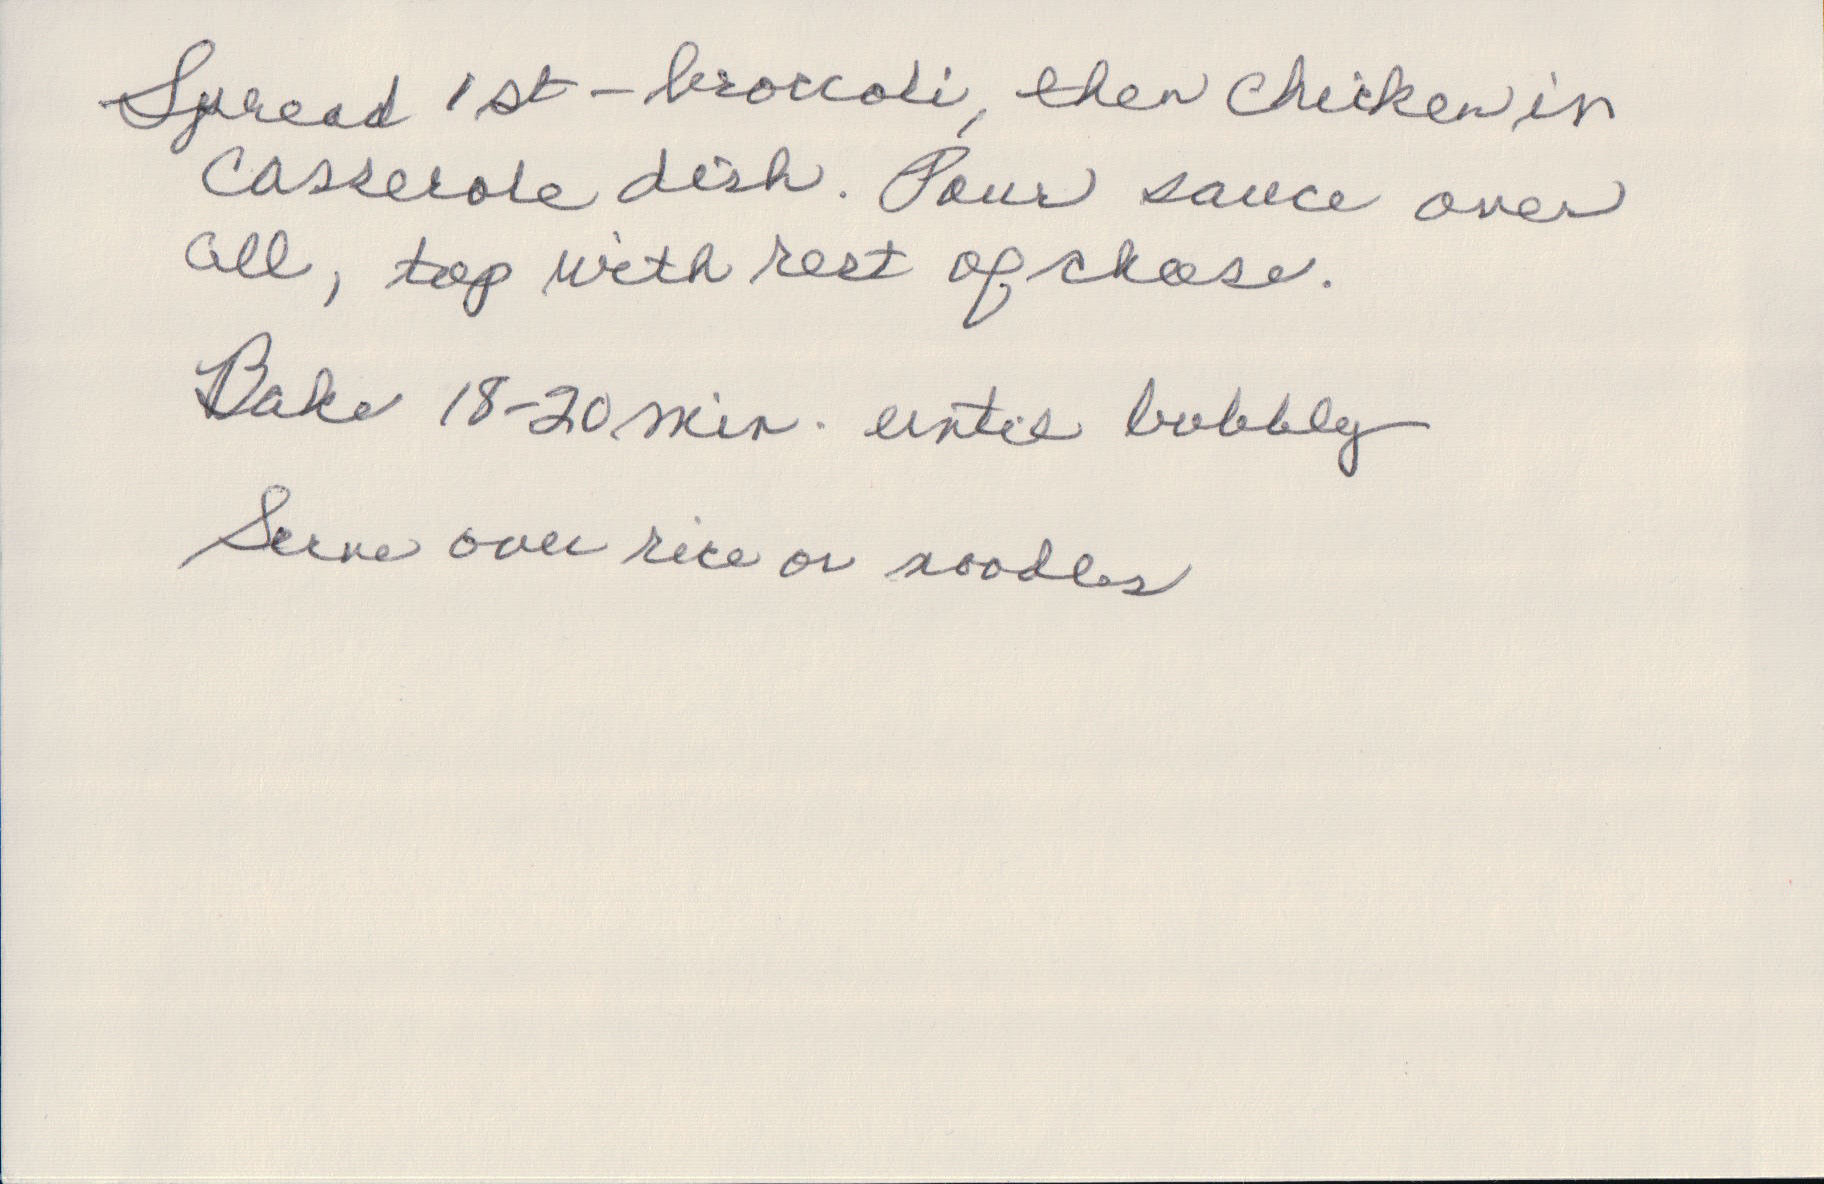 Spread 1st - broccoli, then chicken in
casserole dish. Pour sauce over
all, top with rest of cheese.
Bake 18-20 min. until bubbly
Serve over rice or noodles